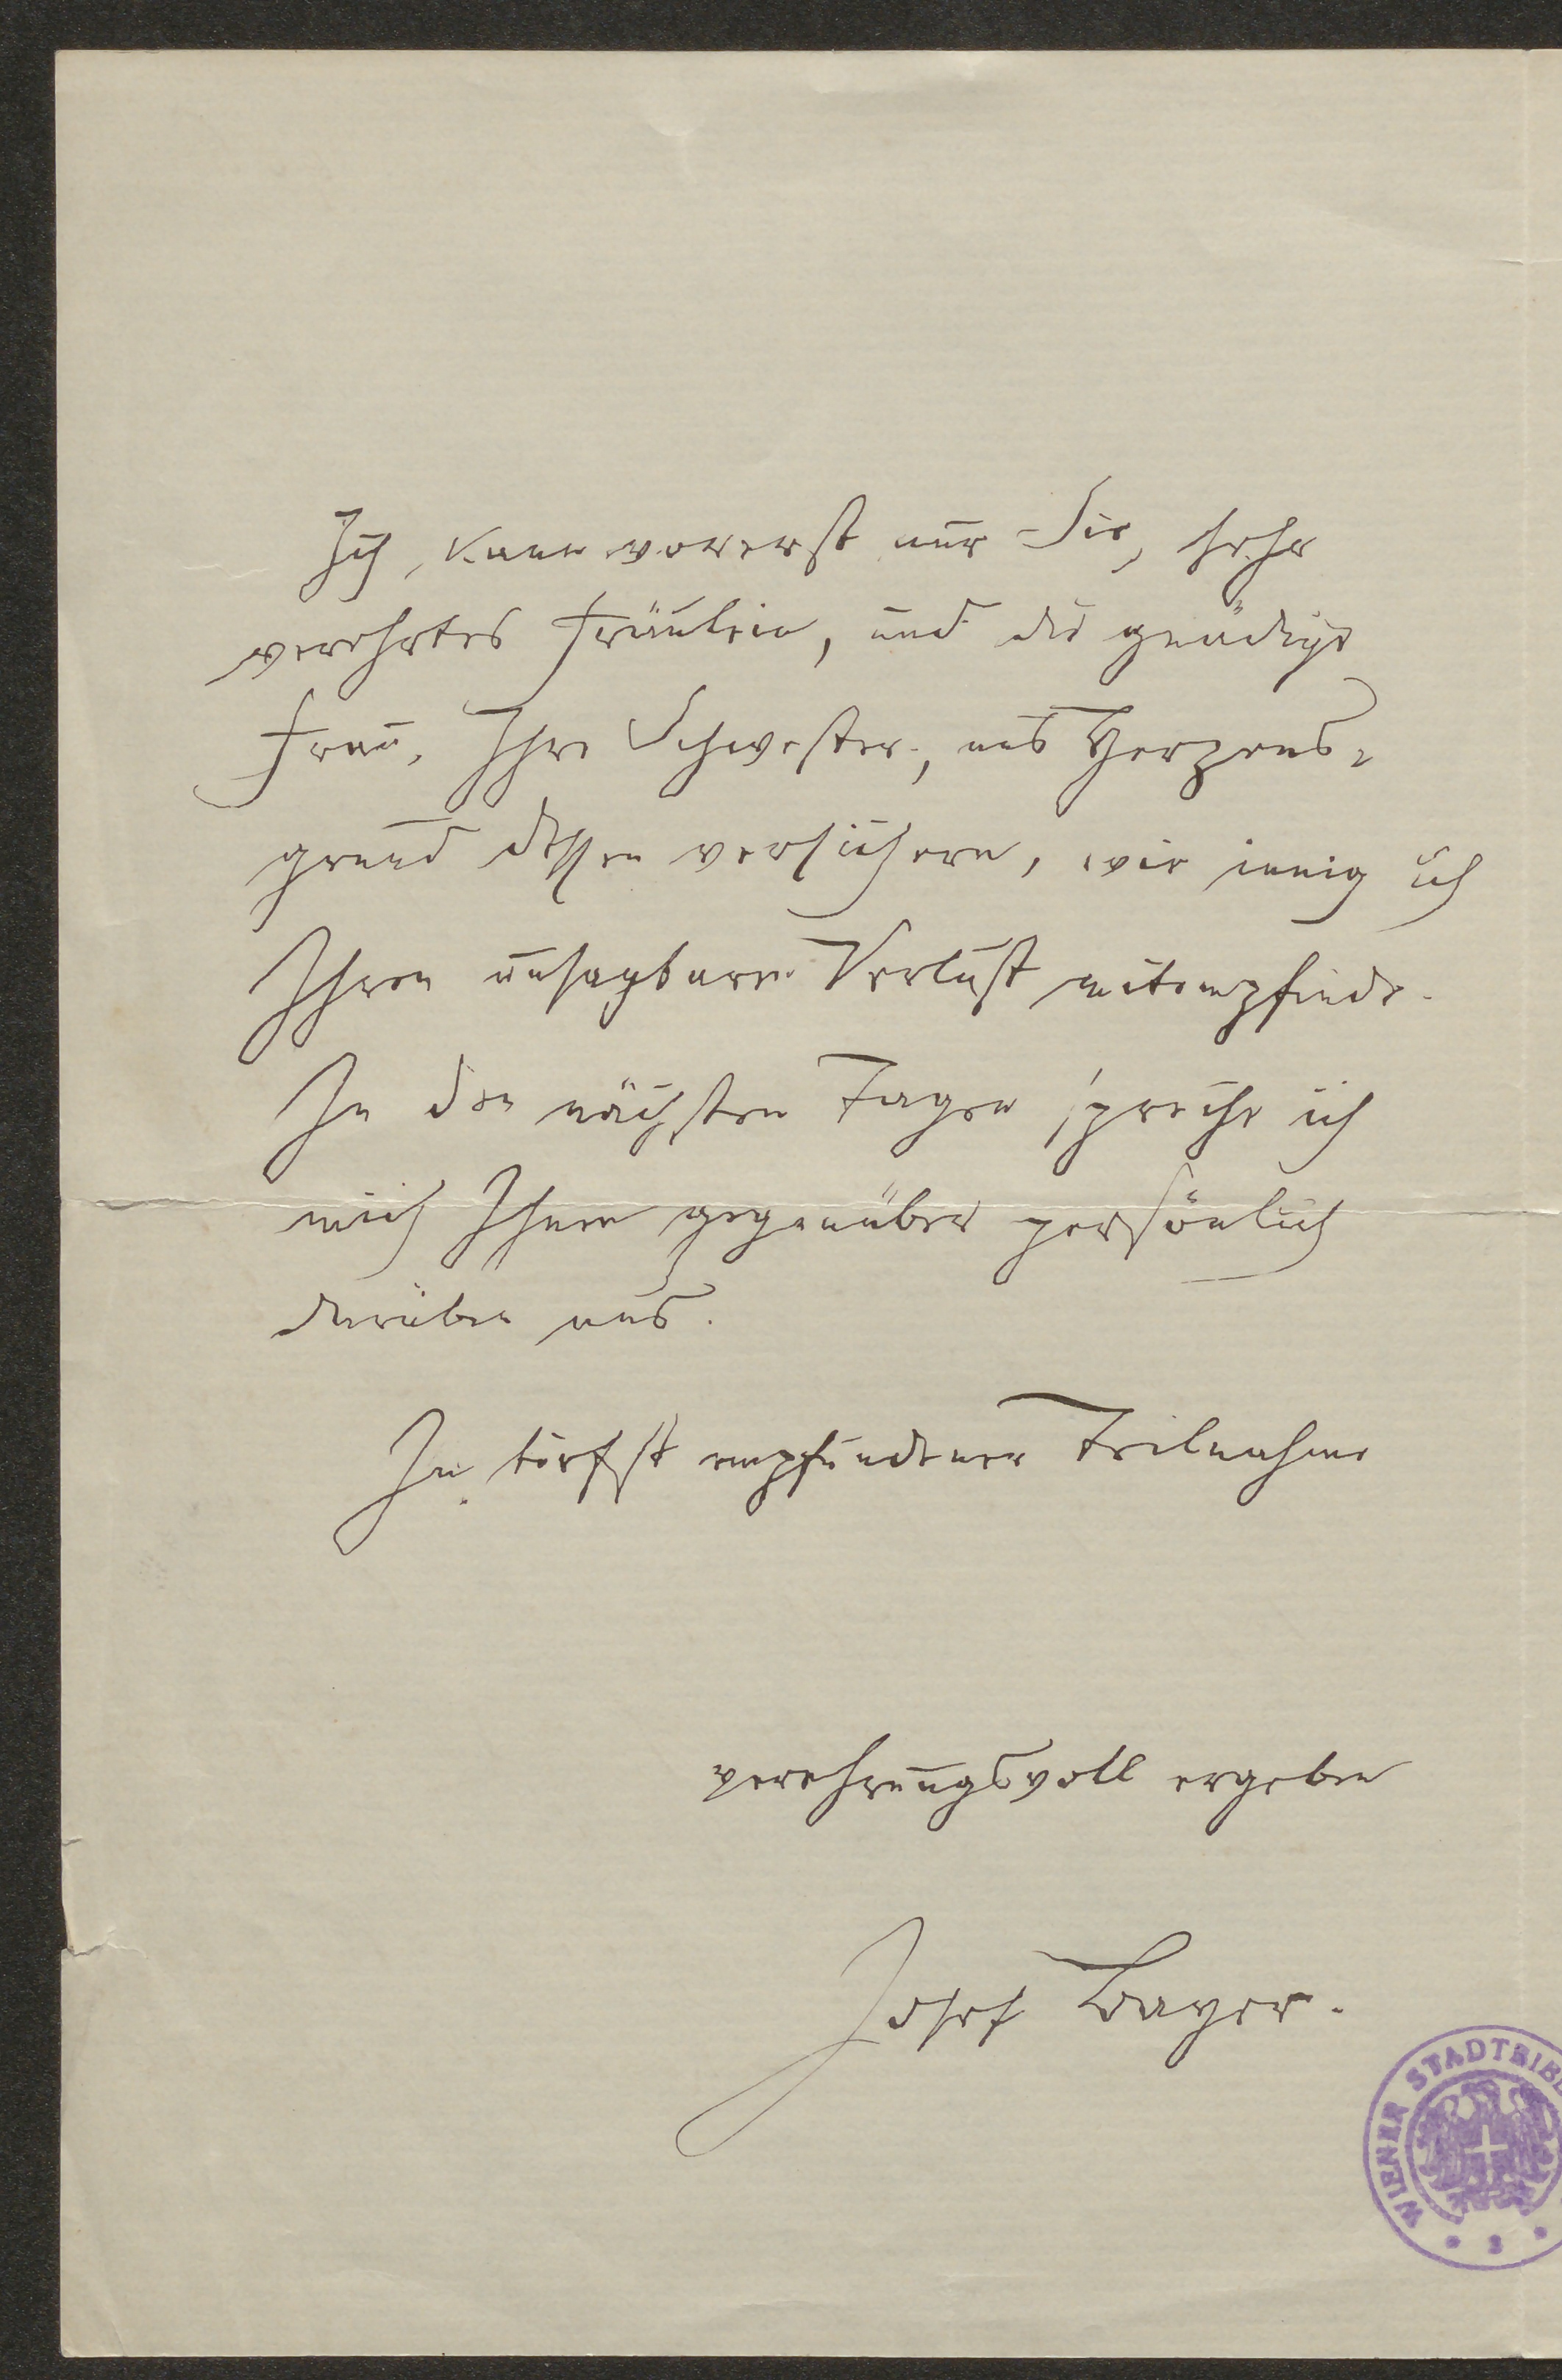 Ich kann vorerst nur Sie, sehr
verehrtes Fräulein, und die gnädige
Frau, Ihre Schwester, aus Herzens-
grund dessen versichern, wie innig ich
Ihren unsagbaren Verlust mitempfinde.
In den nächsten Tagen spreche ich
mich Ihnen gegenüber persönlich
darüber aus.
In tiefst empfundener Teilnahme
verehrungsvoll ergeben
Josef Bayer.
WIENER STADTBIB